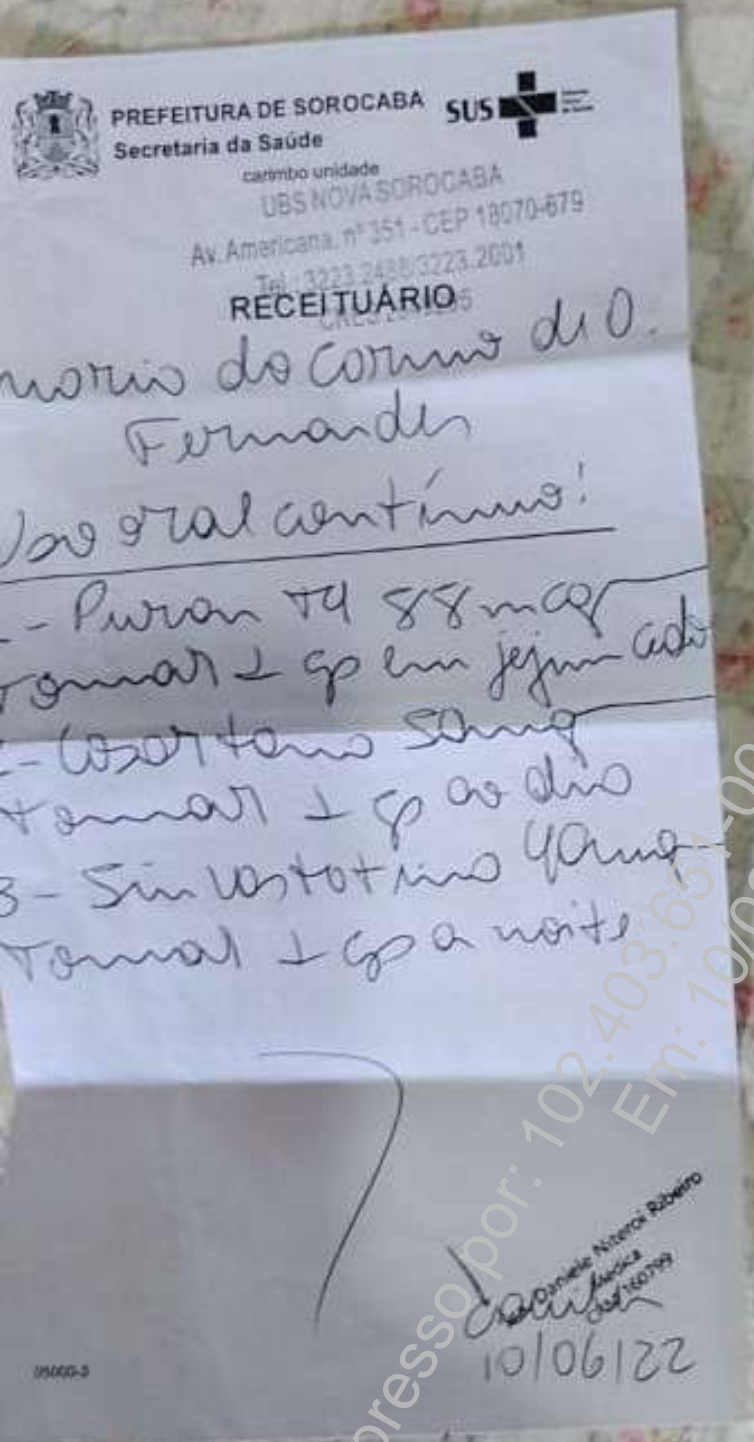 PREFEITURA DE SOROCABA
SUS
Secretaria da Saúde
carimbo unidade
UBS NOVA SOROCABA
Av. Americana, nº 351 - CEP 18070-679
Tel.: 3223.2488/3223.2001
RECEITUÁRIO
Maria do Carmo de O.
Fernandes
Uso oral contínuo!
1- Puran T4 88 mcg
Tomar 1 cp em jejum cedo
2- Losartana 50mg
Tomar 1 cp ao dia
3- Sinvastatina 40mg
Tomar 1 cp a noite
Daniele Niteroi Ribeiro
Médica
10/06/22
05000-3